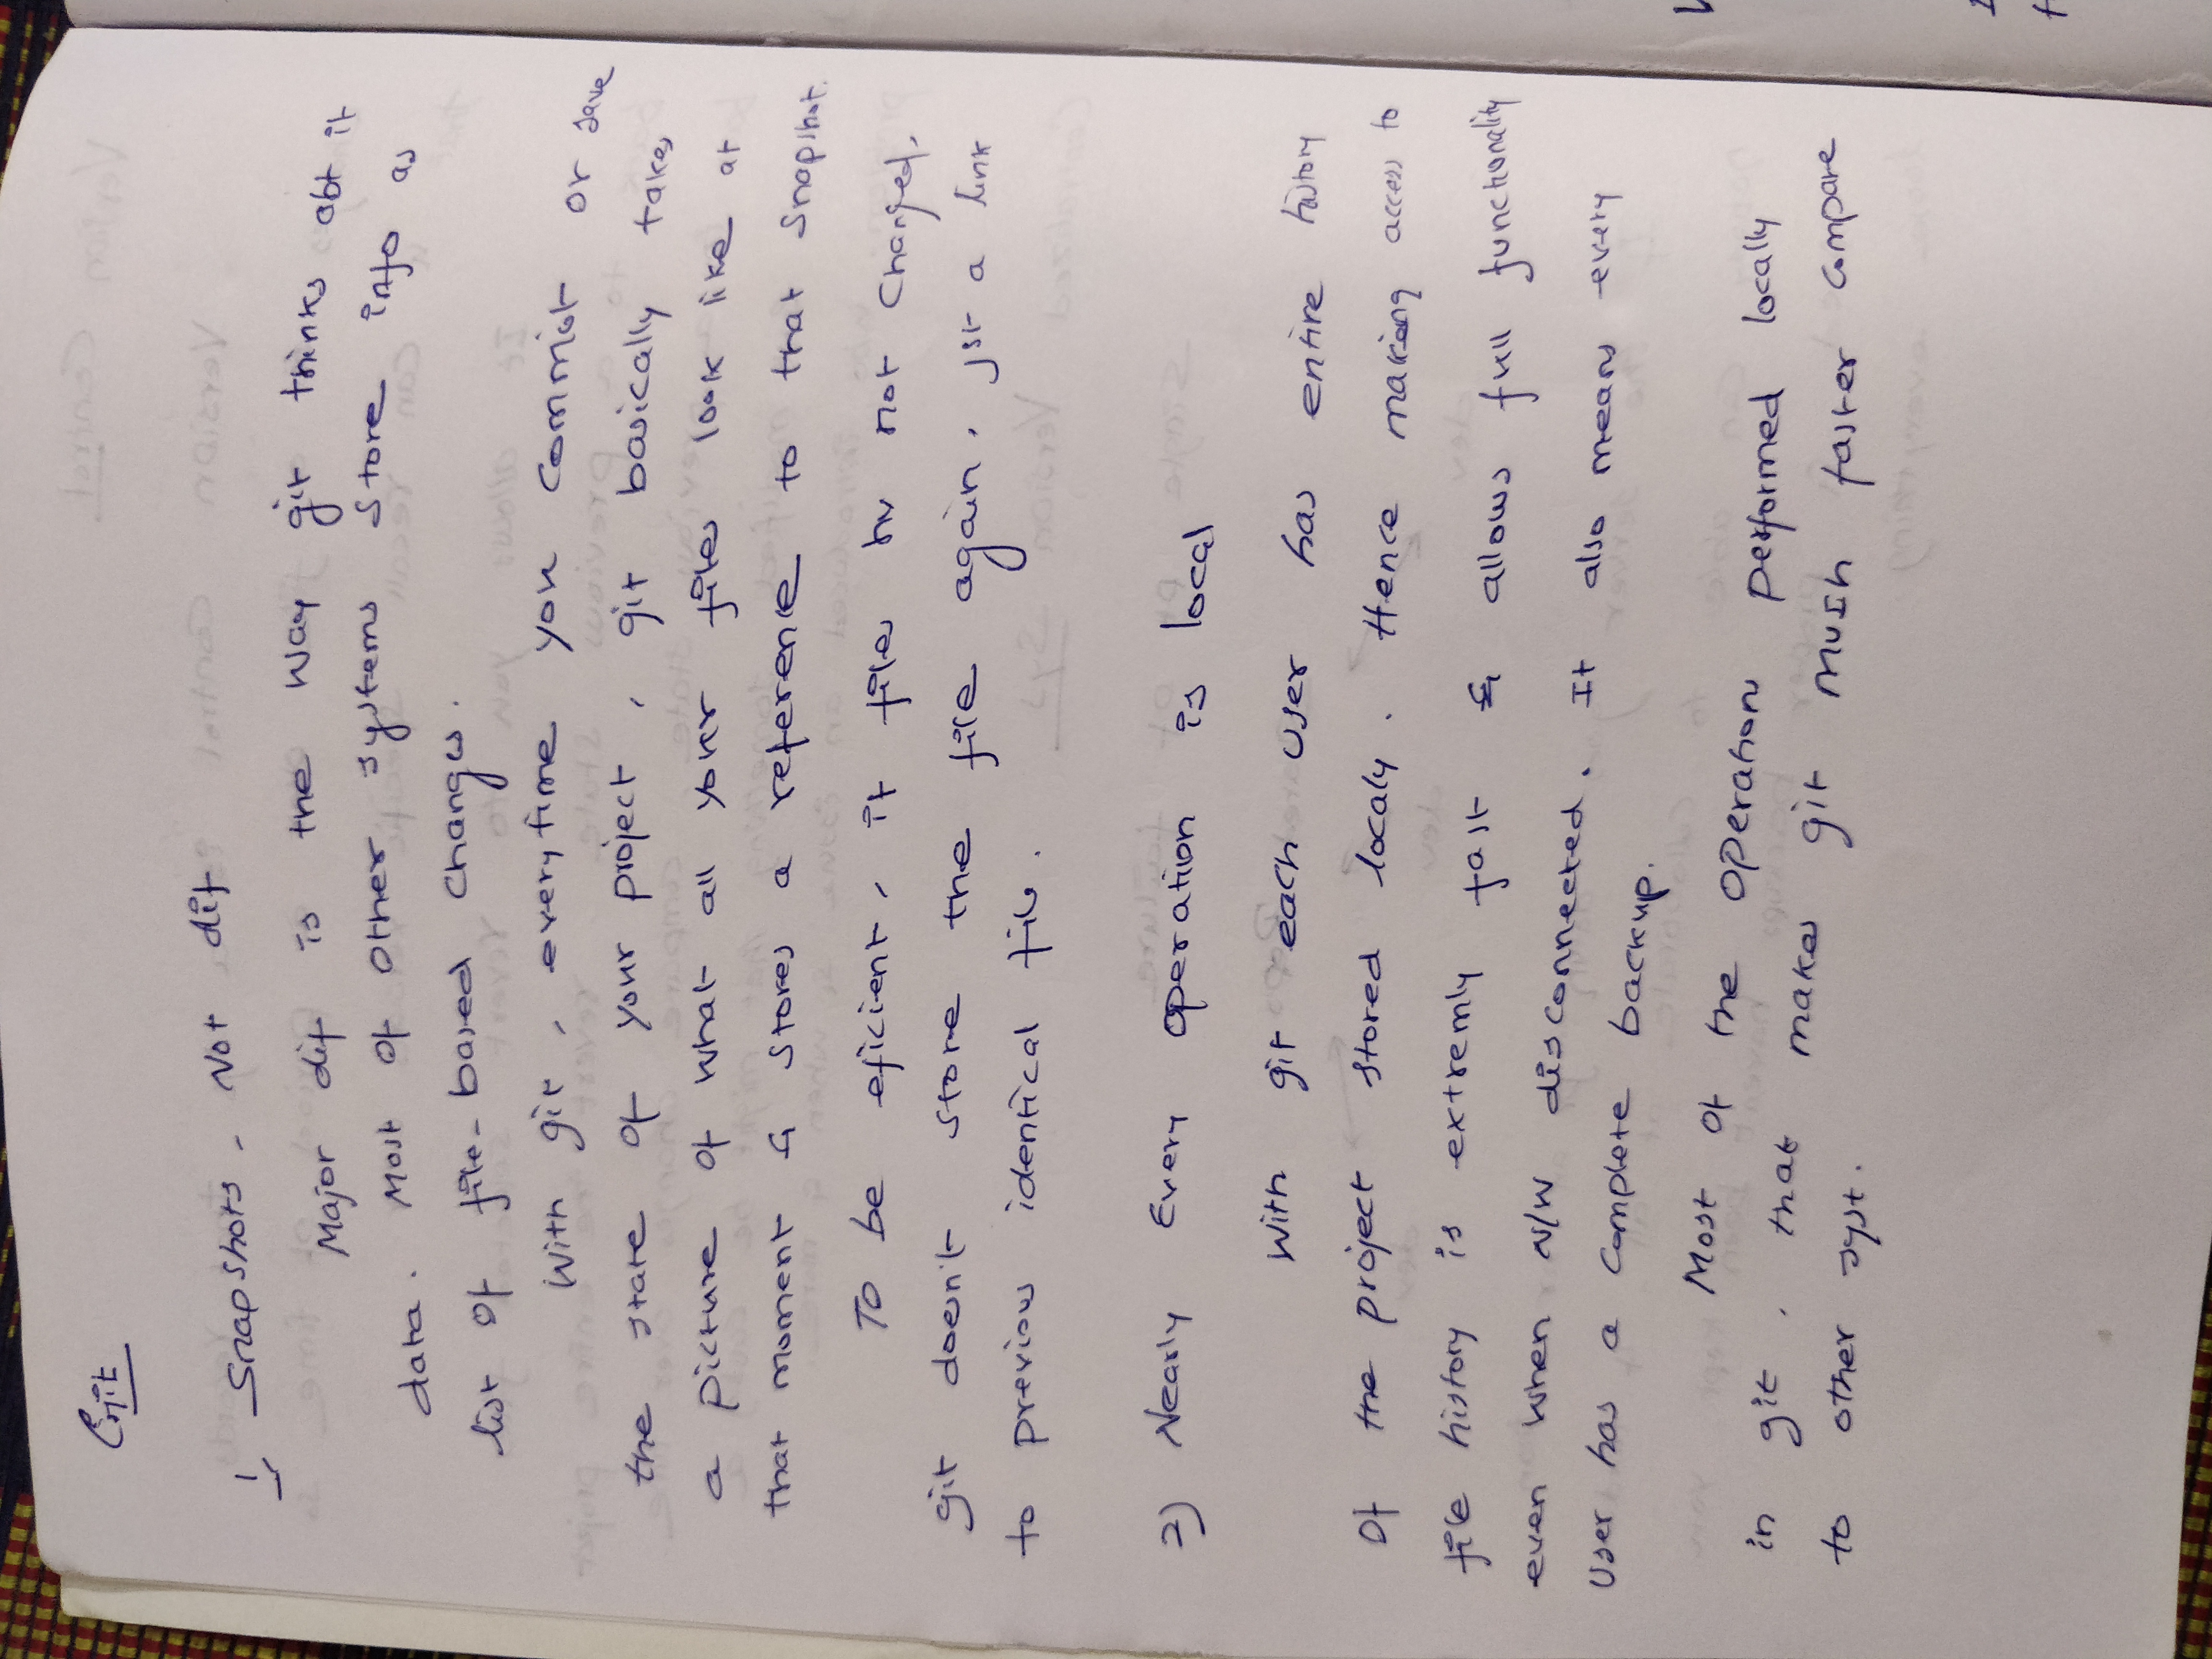 Git
1) Snapshots, Not dif
Major dif is the way git thinks abt it
data. Most of other systems store info as
list of file-based changes.
With git, everytime you commit or save
the state of your project, git basically takes
a picture of what all your files look like at
that moment & stores a reference to that snapshot.
To be eficient, if files hv not changed,
git doesn't store the file again, jst a link
to previous identical file.
2) Nearly Every operation is local
With git each user has entire history
of the project stored localy. Hence making access to
file history is extremly fast & allows full functionality
even when N/W disconnected. It also means every
user has a complete backup.
Most of the operations performed locally
in git, that makes git much faster compare
to other syst.